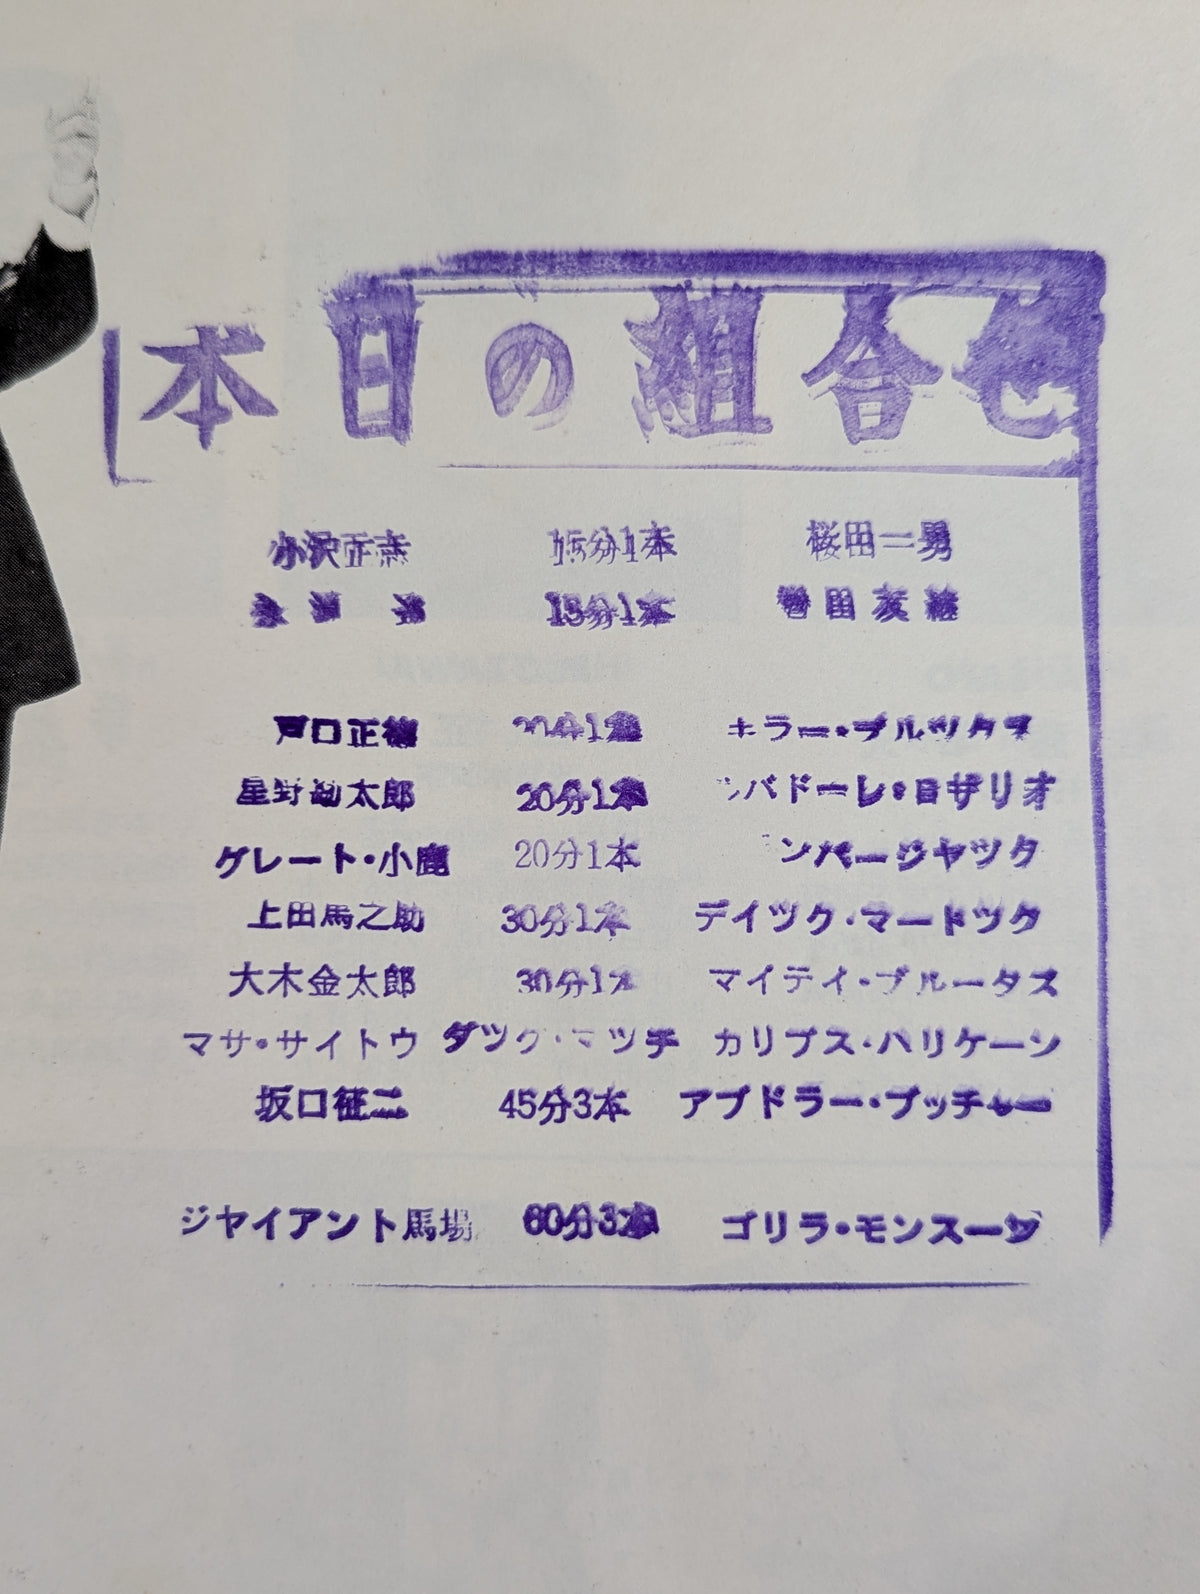 本日の組合せ
小沢正志 15分1本 桜田一男
15分1本
戸口正徳 20分1本 キラー・ブルックス
星野勘太郎 20分1本 バドーレ・ロザリオ
グレート・小鹿 20分1本 ンバージャック
上田馬之助 30分1本 デイツク・マードツク
大木金太郎 30分1本 マイテイ・ブルータス
マサ・サイトウ ダツク・マツチ カリプス・ハリケーン
坂口征二 45分3本 アブドラー・ブッチャー
ジヤイアント馬場 60分3本 ゴリラ・モンスーン